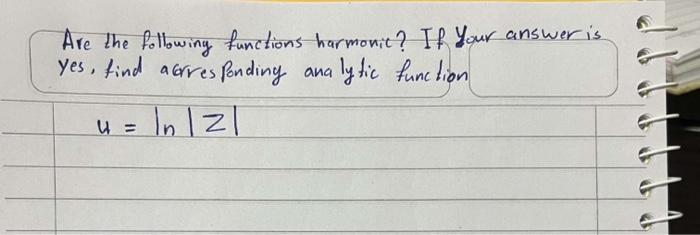 Are the following functions harmonic? If Your answer is
yes, find a corresponding analytic function
u = ln |z|